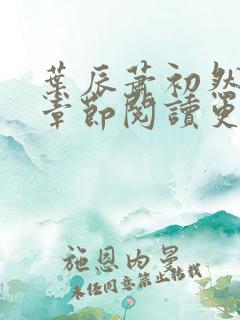 葉辰蕭初然
章節閱讀更
施恩内曼
未经同意禁止转载